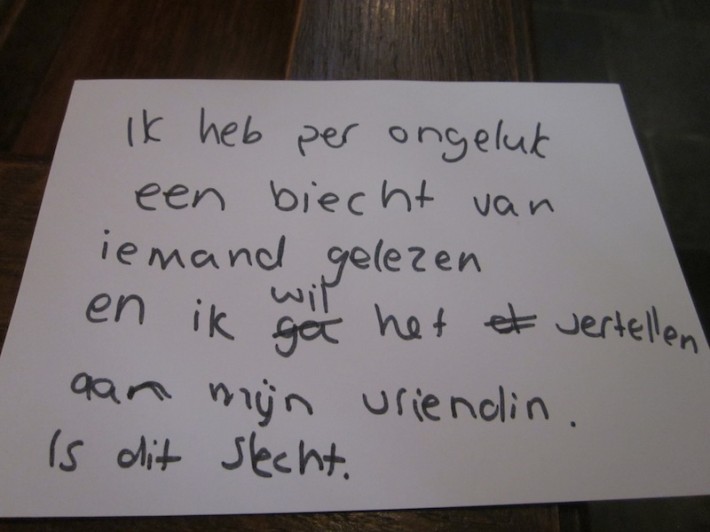 ik heb per ongeluk
een biecht van
iemand gelezen
en ik ga wil het et vertellen
aan mijn vriendin.
Is dit slecht.